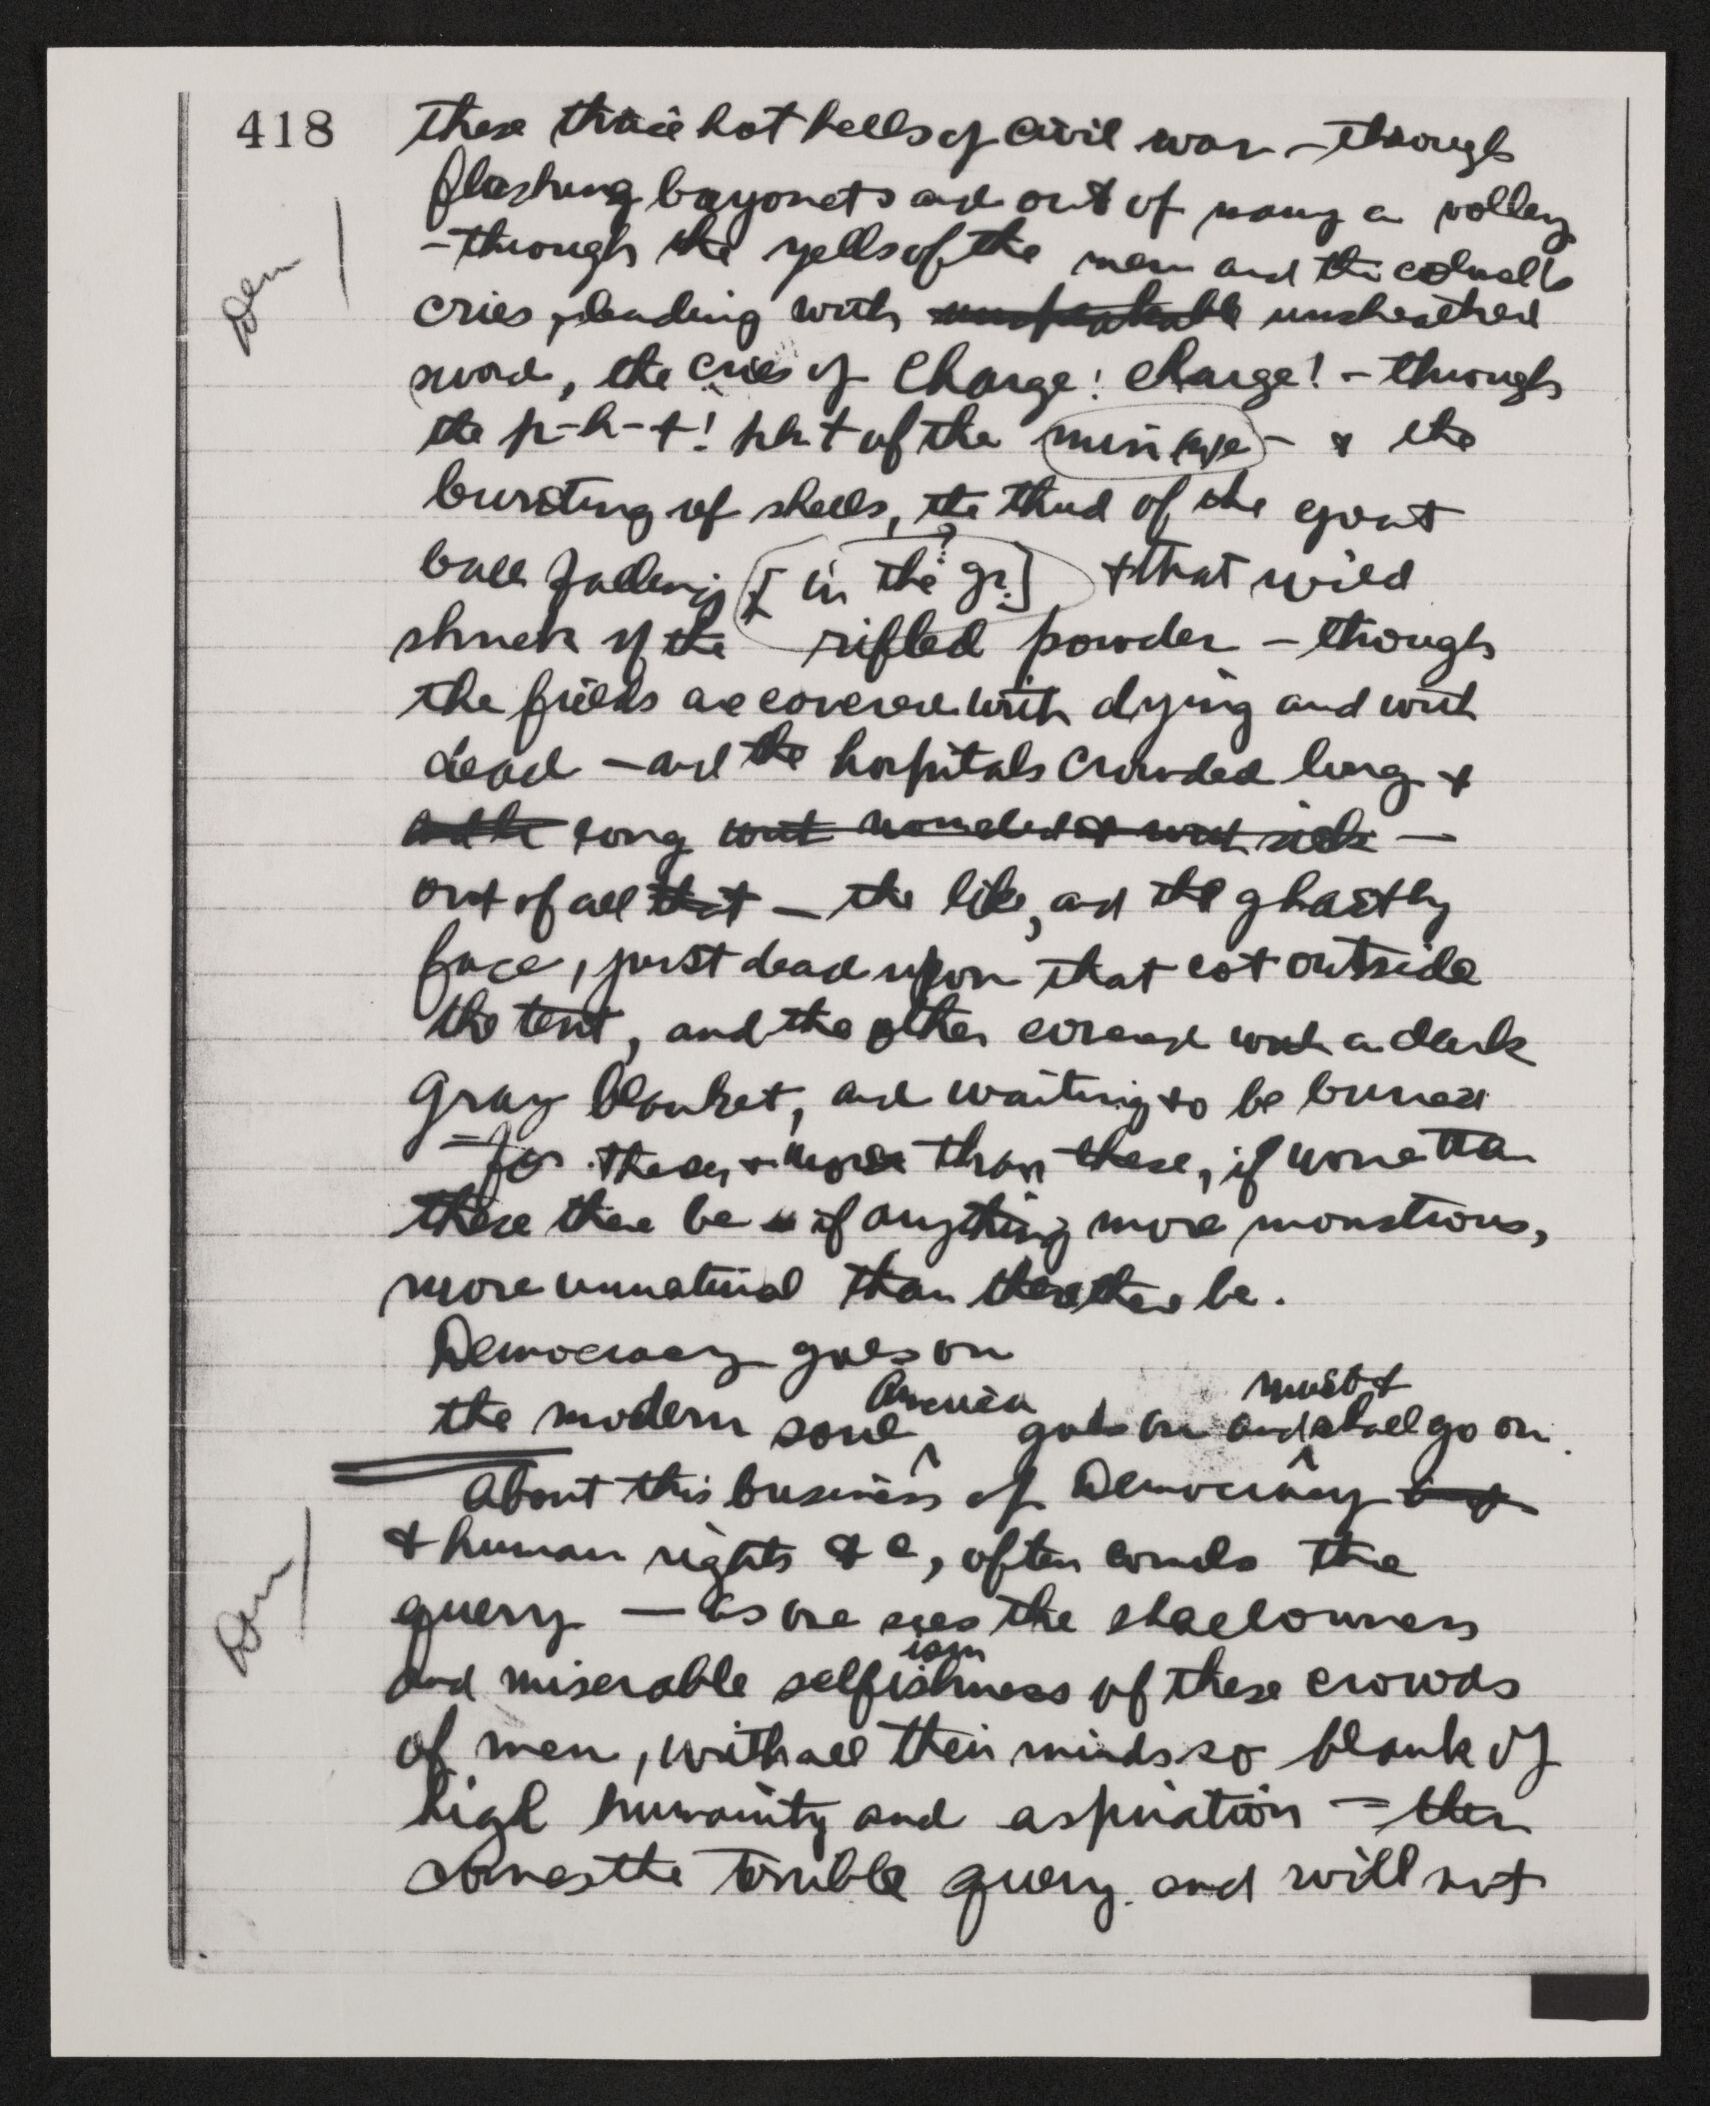 418
these thrice hot hells of civil war – through
flashing bayonets and out of many a volley
– through the yells of the men and the colonel's
cries, leading with unsheathed
sword, the cries of Charge! Charge! – through
the p-h-t! pht of the minie – & the
bursting of shells, the thud of the great
ball falling [in the gr.] & that wild
shriek of the rifled powder – though
the fields are covered with dying and with
dead – and the hospitals crowded long &
long wit wounded & wit sick –
out of all that – the like, and the ghastly
face, just dead upon that cot outside
the tent, and the other covered with a dark
gray blanket, and waiting to be buried
– for these, & worse than these, if worse than
these there be – if anything more monstrous,
more unnatural than these there be.
Democracy goes on
America must &
the modern soul goes on and shall go on.
About this business of Democracy
& human rights &c, often comes the
query – as one sees the shallowness
ism
and miserable selfishness of these crowds
of men, with all their minds so blank of
high humanity and aspiration – then
comes the terrible query and will not
Dem
Dem